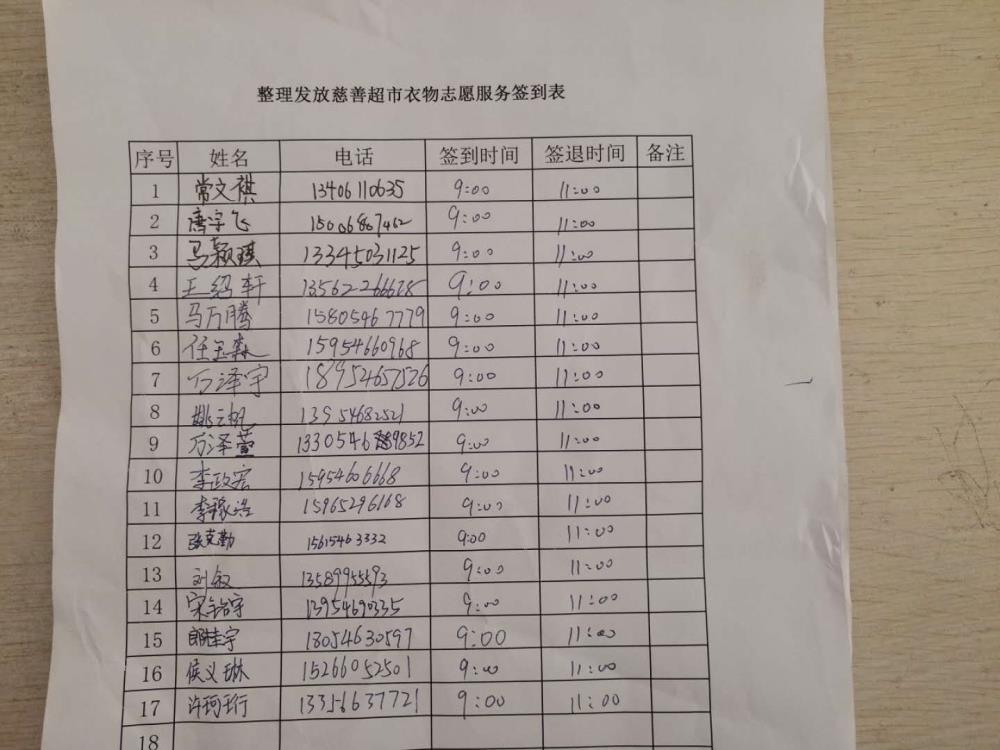 整理发放慈善超市衣物志愿服务签到表
序号 姓名 电话 签到时间 签退时间 备注
1 常文祺 13406110635 9:00 11:00
2 唐宇飞 15006807462 9:00 11:00
3 马颖琪 13345031125 9:00 11:00
4 王绍轩 13562266628 9:00 11:00
5 马万腾 15805467779 9:00 11:00
6 任玉森 15954660968 9:00 11:00
7 万泽宇 18952657526 9:00 11:00
8 姚云帆 13954682521 9:00 11:00
9 万泽萱 9:00 11:00
10 李政宏 15954606668 9:00 11:00
11 李稼浩 15965296168 9:00 11:00
12 张克勤 15615463332 9:00 11:00
13 刘叙 13589955593 9:00 11:00
14 13954690335 9:00 11:00
15 郎佳宇 18054630597 9:00 11:00
16 侯义琳 15266052501 9:00 11:00
17 许珂珩 13356637721 9:00 11:00
18